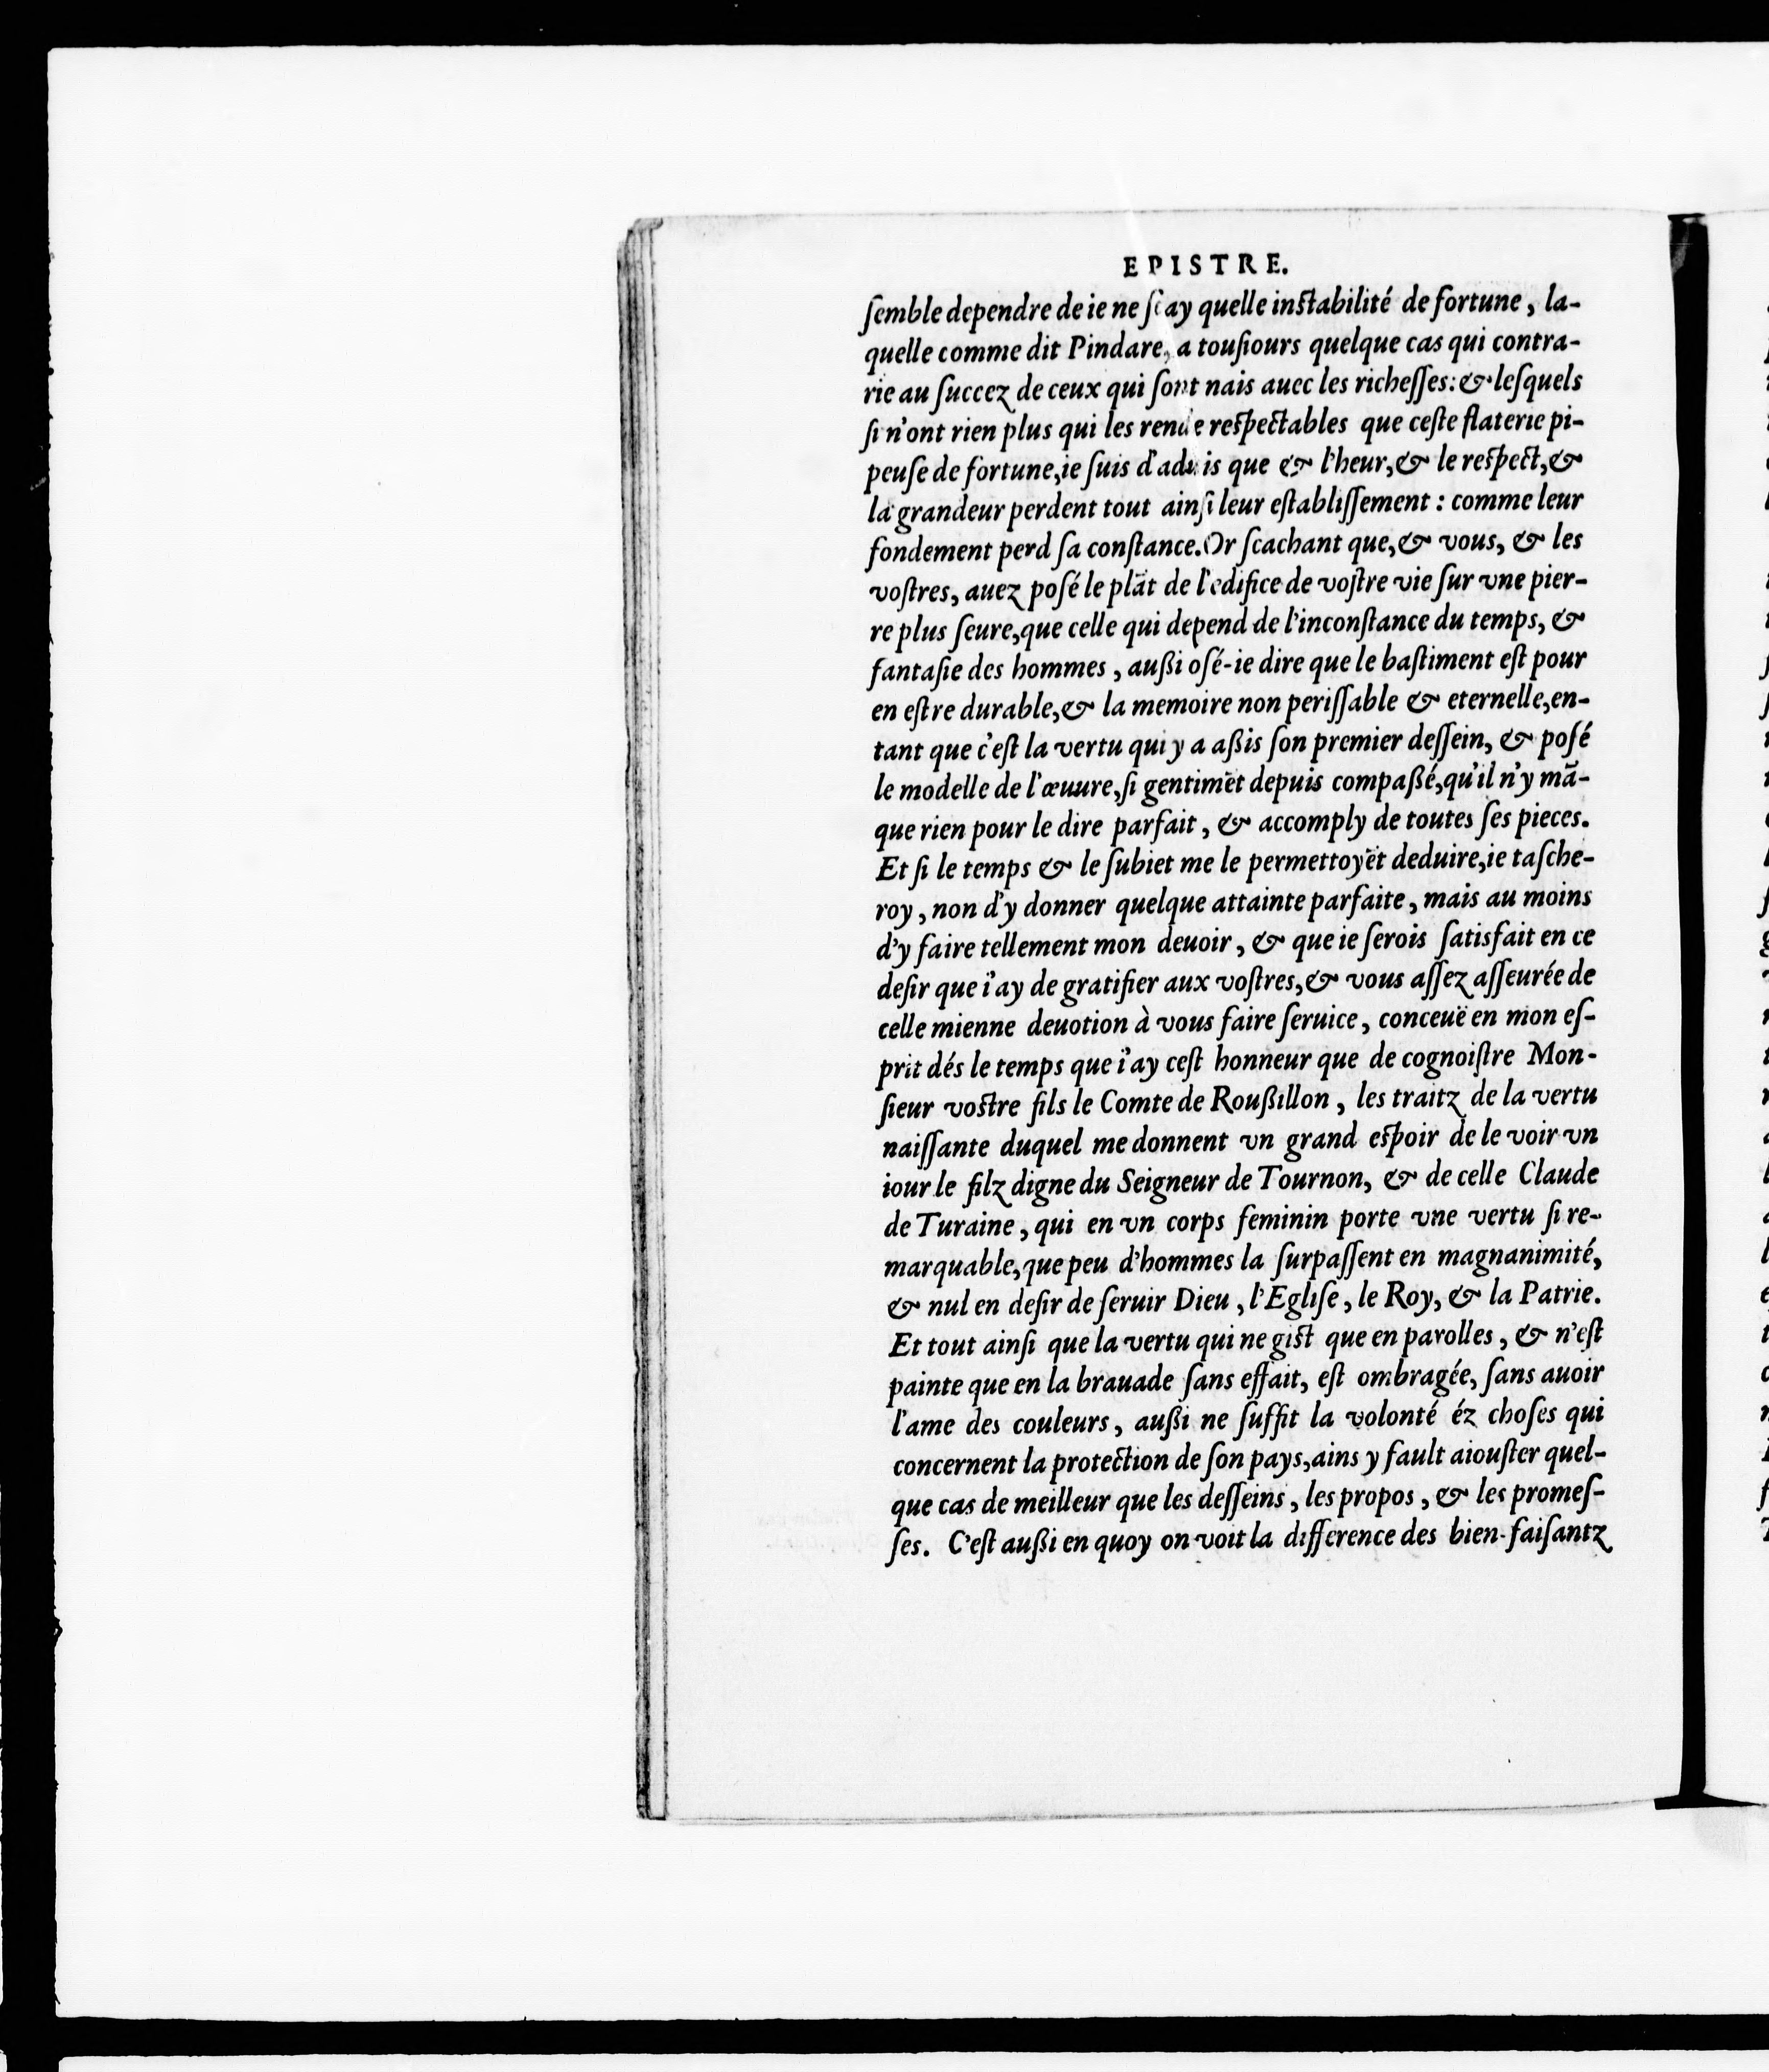 EPISTRE.
ſemble dependre de ie ne ſcay quelle inſtabilité de fortune, la-
quelle comme dit Pindare, a touſiours quelque cas qui contra-
rie au ſuccez de ceux qui ſont nais auec les richeſſes: & leſquels
ſi n'ont rien plus qui les rende reſpectables que ceſte flaterie pi-
peuſe de fortune, ie ſuis d'aduis que & l'heur, & le reſpect, &
la grandeur perdent tout ainſi leur eſtabliſſement : comme leur
fondement perd ſa conſtance. Or ſcachant que, & vous, & les
voſtres, auez poſé le plāt de l'edifice de voſtre vie ſur vne pier-
re plus ſeure, que celle qui depend de l'inconſtance du temps, &
fantaſie des hommes, außi oſé-ie dire que le baſtiment eſt pour
en eſtre durable, & la memoire non periſſable & eternelle, en-
tant que c'eſt la vertu qui y a aßis ſon premier deſſein, & poſé
le modelle de l'œuure, ſi gentimēt depuis compaßé, qu'il n'y mā-
que rien pour le dire parfait, & accomply de toutes ſes pieces.
Et ſi le temps & le ſubiet me le permettoyēt deduire, ie taſche-
roy, non d'y donner quelque attainte parfaite, mais au moins
d'y faire tellement mon deuoir, & que ie ſerois ſatisfait en ce
deſir que i'ay de gratifier aux voſtres, & vous aſſez aſſeurée de
celle mienne deuotion à vous faire ſeruice, conceuë en mon eſ-
prit dés le temps que i'ay ceſt honneur que de cognoiſtre Mon-
ſieur voſtre fils le Comte de Roußillon, les traitz de la vertu
naiſſante duquel me donnent vn grand eſpoir de le voir vn
iour le filz digne du Seigneur de Tournon, & de celle Claude
de Turaine, qui en vn corps feminin porte vne vertu ſi re-
marquable, que peu d'hommes la ſurpaſſent en magnanimité,
& nul en deſir de ſeruir Dieu, l'Egliſe, le Roy, & la Patrie.
Et tout ainſi que la vertu qui ne giſt que en parolles, & n'eſt
painte que en la brauade ſans effait, eſt ombragée, ſans auoir
l'ame des couleurs, außi ne ſuffit la volonté éz choſes qui
concernent la protection de ſon pays, ains y fault aiouſter quel-
que cas de meilleur que les deſſeins, les propos, & les promeſ-
ſes. C'eſt außi en quoy on voit la difference des bien-faiſantz